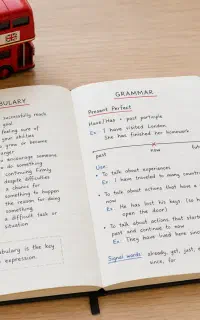 ABULARY
successfully reach
goal
feeling sure of
your abilities
to grow or become
onger
o encourage someone
o do something
continuing firmly
despite difficulties
a chance for
something to happen
the reason for doing
something
a difficult task or
situation
abulary is the key
expression.
GRAMMAR
Present Perfect
Have/Has + past participle
Ex: I have visited London.
She has finished her homework
past
now
futu
Use:
• To talk about experiences
Ex: I have traveled to many countri
• To talk about actions that have a
now
Ex: He has lost his keys (so h
open the door)
• To talk about actions that starte
past and continue to now
Ex: They have lived here sinc
Signal words: already, yet, just, e
since, for